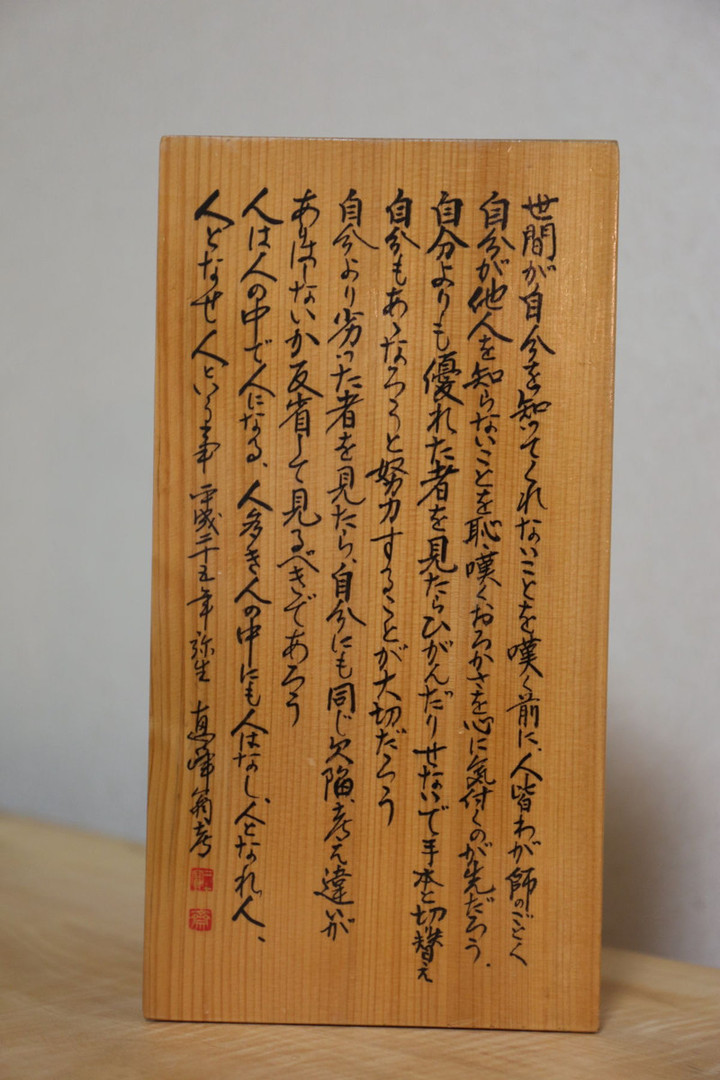 世間が自分を知ってくれないことを嘆く前に、人皆わが師のごとく
自分が他人を知らないことを恥、嘆くおろかさを心に気付くのが先だろう、
自分よりも優れた者を見たらひがんだりせないで手本と切替え
自分もあゝなろうと努力することが大切だろう
自分より劣った者を見たら、自分にも同じ欠陥、考え違いが
ありはしないか反省して見るべきであろう
人は人の中で人になる、人多き人の中にも人はなし、人となれ人、
人となせ人という事 平成二十五年弥生